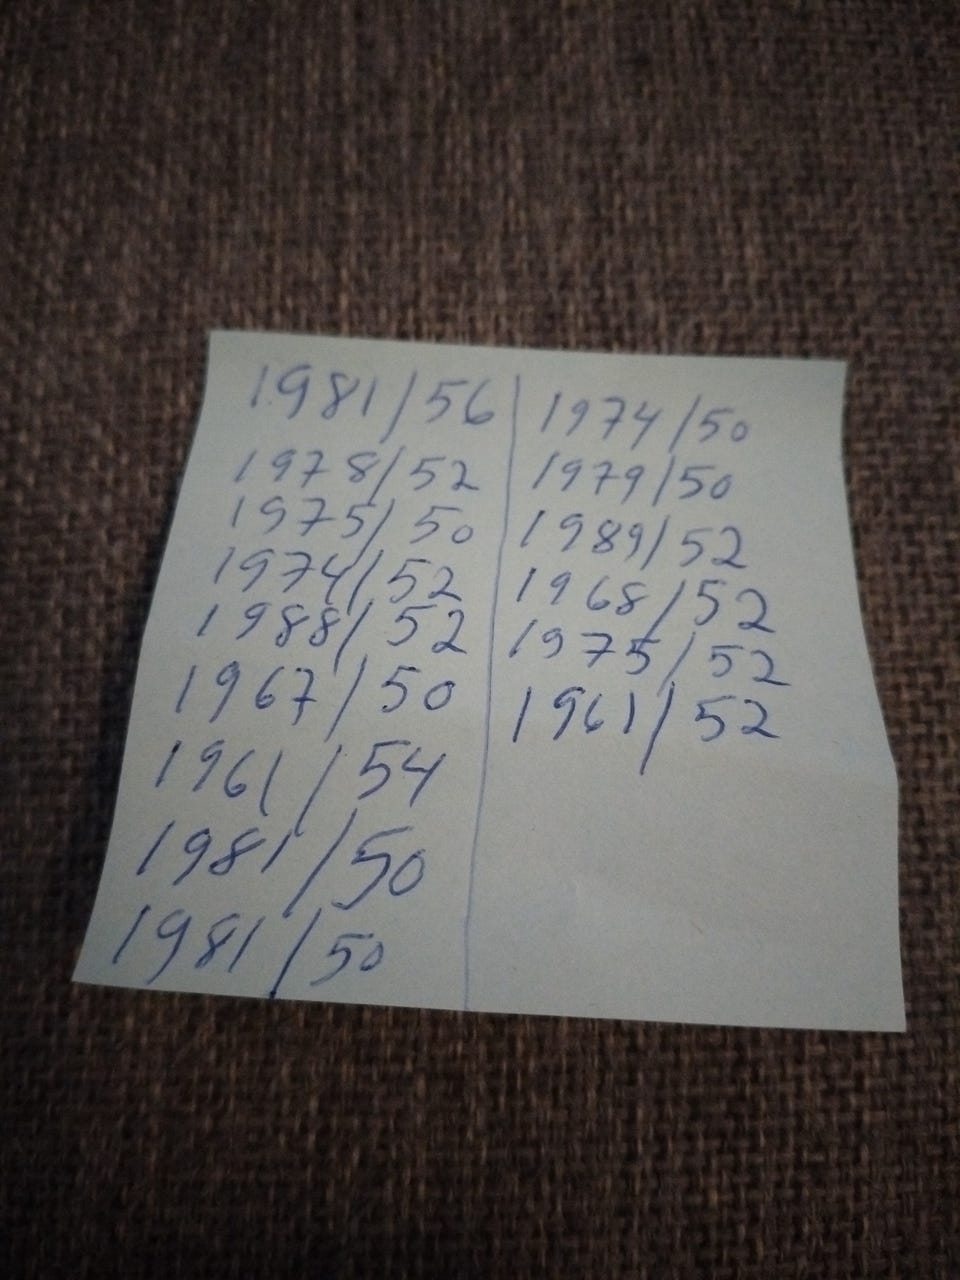 1981/56
1978/52
1975/50
1974/52
1988/52
1967/50
1961/54
1981/50
1981/50
1974/50
1979/50
1989/52
1968/52
1975/52
1961/52